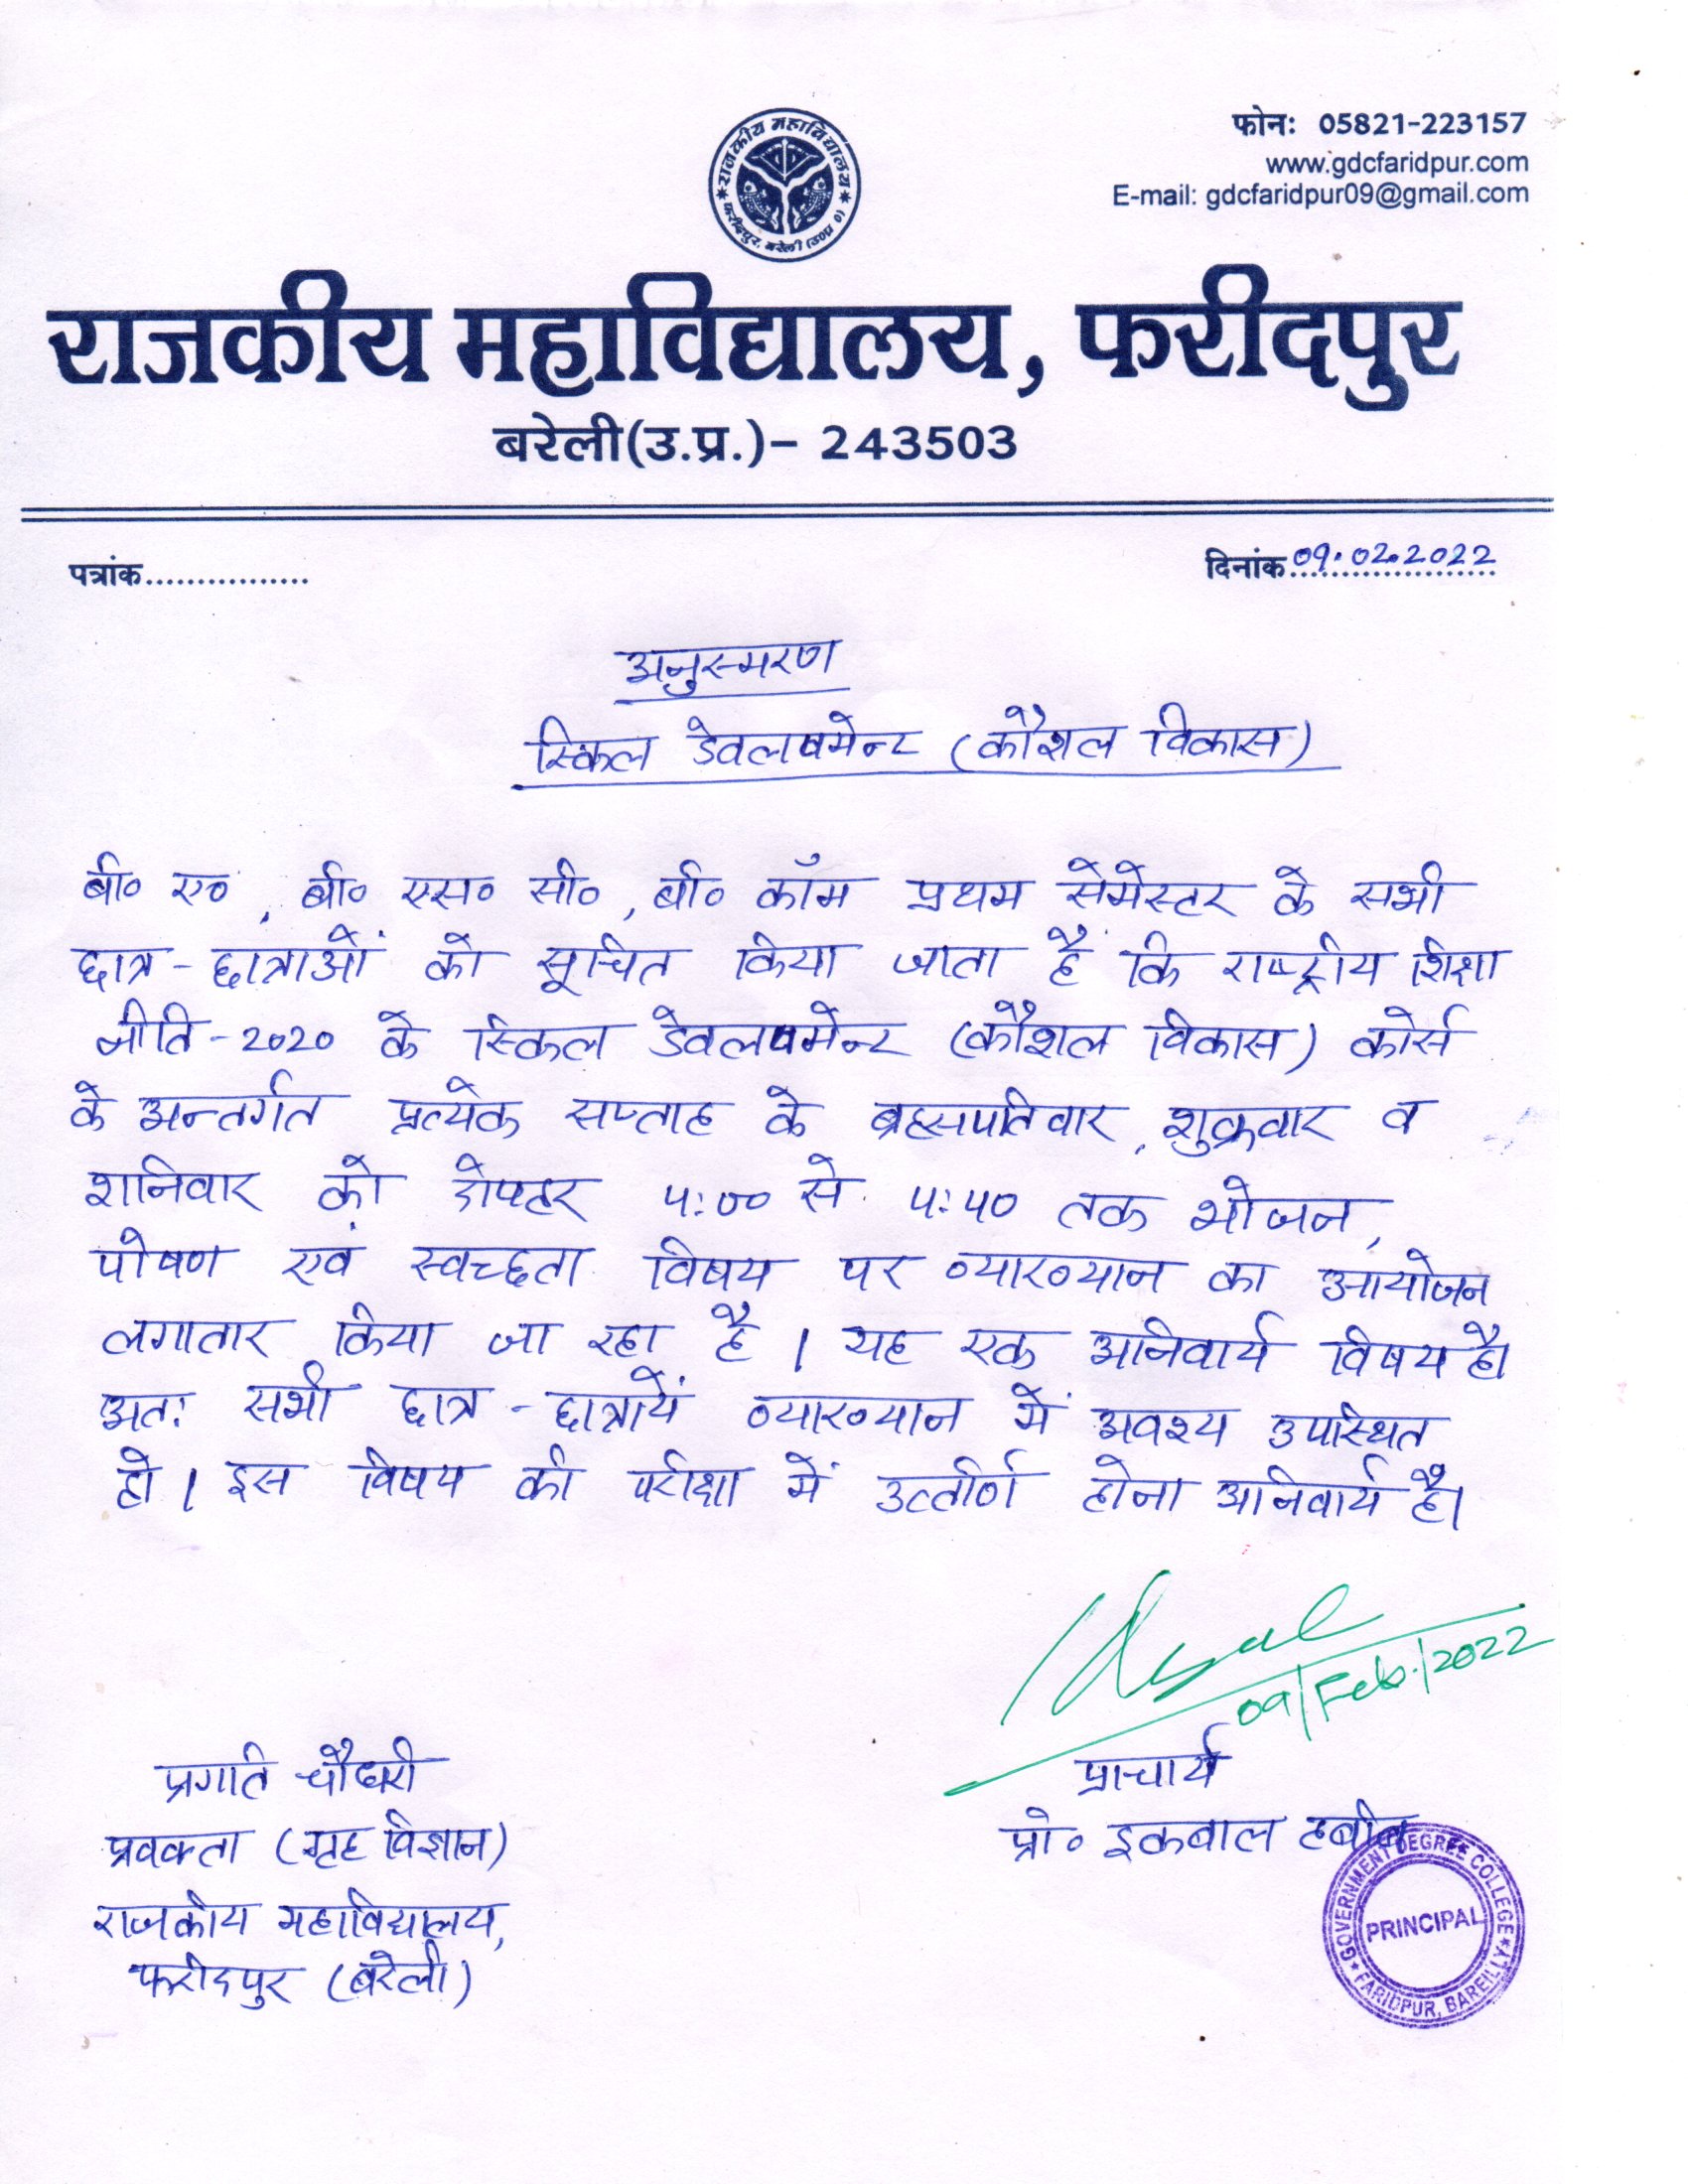 राजकीय महाविद्यालय
फरीदपुर, बरेली (उ०प्र०)
फोन: 05821-223157
www.gdcfaridpur.com
E-mail: gdcfaridpur09@gmail.com
राजकीय महाविद्यालय, फरीदपुर
बरेली(उ.प्र.)- 243503
पत्रांक................
दिनांक 09.02.2022
अनुस्मरण
स्किल डेवलपमेन्ट (कौशल विकास)
बी० ए०, बी० एस० सी०, बी० कॉम प्रथम सेमेस्टर के सभी
छात्र-छात्राओं को सूचित किया जाता है कि राष्ट्रीय शिक्षा
नीति-2020 के स्किल डेवलपमेन्ट (कौशल विकास) कोर्स
के अन्तर्गत प्रत्येक सप्ताह के ब्रहस्पतिवार, शुक्रवार व
शनिवार को दोपहर 4:00 से 4:40 तक भोजन,
पोषण एवं स्वच्छता विषय पर व्याख्यान का आयोजन
लगातार किया जा रहा है। यह एक अनिवार्य विषय है।
अतः सभी छात्र-छात्रायें व्याख्यान में अवश्य उपस्थित
हो। इस विषय की परीक्षा में उत्तीर्ण होना अनिवार्य है।
09/Feb./2022
प्राचार्य
प्रो० इकबाल हबीब
प्रगति चौधरी
प्रवक्ता (गृह विज्ञान)
राजकीय महाविद्यालय,
फरीदपुर (बरेली)
GOVERNMENT DEGREE COLLEGE
PRINCIPAL
FARIDPUR, BAREILLY